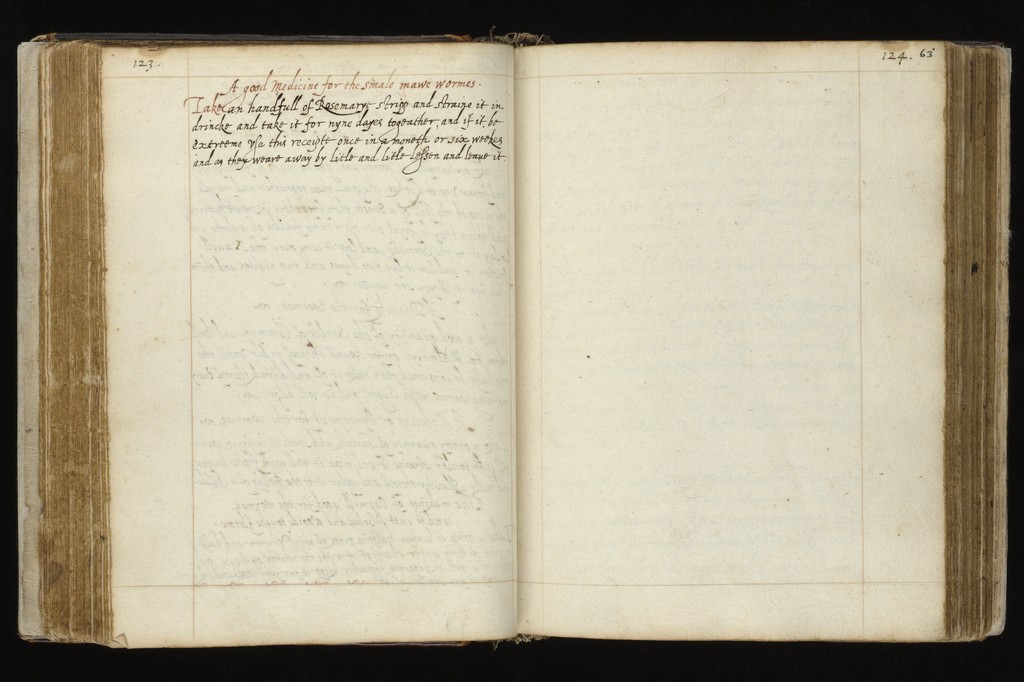 123.
A good Medicine for the smale mawe wormes.
Take an handfull of Rosemarye stripp and straine it in
drincke and take it for nyne dayes togeather, and if it be
extreeme vse this receipte once in a moneth or six weekes
and as they weare away by litle and litle lessen and leaue it
124. 63